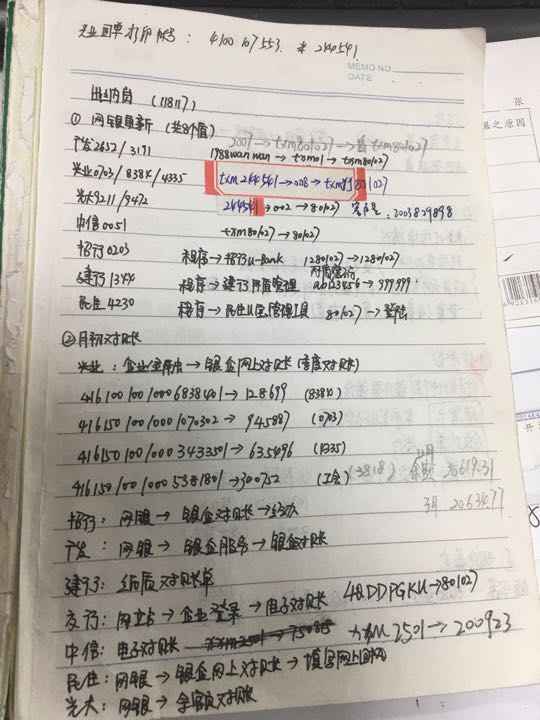 兴业回单打印账号: 4100 107553. * 244541.
MEMO NO.
DATE
张
据之原因
出纳岗 (118117)
① 网银更新 (共8个值)
广发 2652 / 3191
2001→txm80127→
1988wanwan → txm01 → txm80127
兴业0703 / 8384 / 4335
txm 244541→008→txm 80127
光大9211 / 9472
244541→002→80127 客户号: 2003829898
中信0051
txm80127→80127
招行0203
程序→招行U-Bank 1280127→128127
建行1344
程序→建行网盾管理 ab123456→999999
民生4230
程序→民生U宝管理工具 80127→登陆
②月初对账
兴业: 企业金融 → 银企网上对账 (季度对账)
416100 100 1000 6838401→ 128699 (8384)
416150 100 1000 1070302→ 94588 (0703)
416150 100 1000 3433501→ 635496 (4335)
416150 100 1000 5381801→ 300752 (工会) (3818) 余额 20619.31
3月 20634.77
招行: 网银 → 银企对账 → 经办
广发: 网银 → 银企服务 → 银企对账
建行: 纸质对账单
交行: 网站 → 企业登录 → 电子对账 48DDPGKU→80127
中信: 电子对账 txm2501→200923
民生: 网银→银企网上对账→填写网上回执
光大: 网银→余额对账